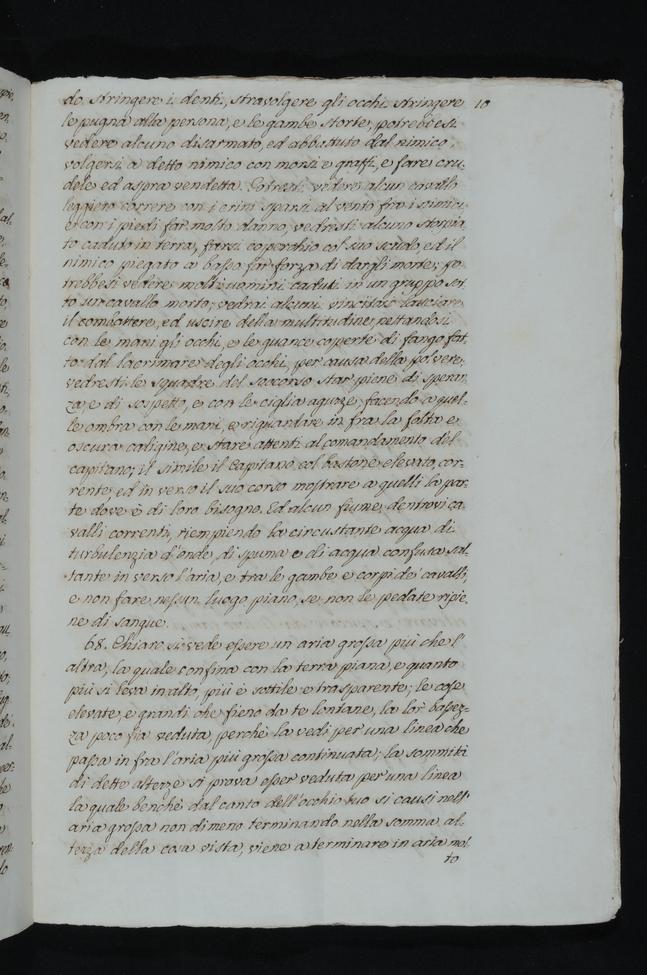 do. stringere i denti, stravolgere gli occhi stringere 10
le pugna alla persona, e le gambe storte, potrebbesi
vedere alcuno disarmato, ed abbattuto dal nimico,
volgersi a detto nimico con morsi e graffi, e fare cru-
dele ed aspra vendetta. Potriasi vedere alcun cavallo
leggiero correre con i crini sparsi al vento fra i nimici
e con i piedi far molto danno, vedresti alcuno stroppia
to caduto in terra, farsi coparchio col suo scudo, ed il
nimico piegato a basso far forza di dargli morte; po
trebbesi vedere molti uomini caduti in un gruppo sot
to un cavallo morto; vedrai alcuni vincitori lasciare
il combattere, ed uscire della multitudine, nettandosi
con le mani gli occhi, e le guance coperte di fango fat
to dal lacrimare degli occhi, per causa della polvere.
vedresti le squadre del soccorso star piene di speran
za, e di sospetto, e con le ciglia aguzze, facendo a quel-
le ombra con le mani, e riguardare in fra la folta e
oscura caligine, e stare attenti al comandamento del
capitano; il simile il Capitano col bastone elevato, cor-
rente, ed in verso il suo corso mostrare a quelli la par-
te dove è di loro bisogno. Ed alcun fiume, dentrovi ca-
valli correnti, riempiendo la circustante acqua di
turbulenzia d'onde, di spuma e di acqua confusa sal-
tante in verso l'aria, e tra le gambe e corpi de' cavalli,
e non fare nessun luogo piano, se non le pedate ripie-
ne di sangue.
68. Chiaro si vede essere un aria grossa più che l'
altra, la quale confina con la terra piana, e quanto
più si leva in alto, più è sottile e trasparente; le cose
elevate, e grandi che fieno da te lontane, la lor bassez-
za poco fia veduta, perchè la vedi per una linea che
passa in fra l'aria più grossa continuata; la sommità
di dette altezze si prova esser veduta per una linea
la quale benchè dal canto dell'occhio tuo si causi nell'
aria grossa non dimeno terminando nella somma al-
tezza della cosa vista, viene a terminare in aria mol
to